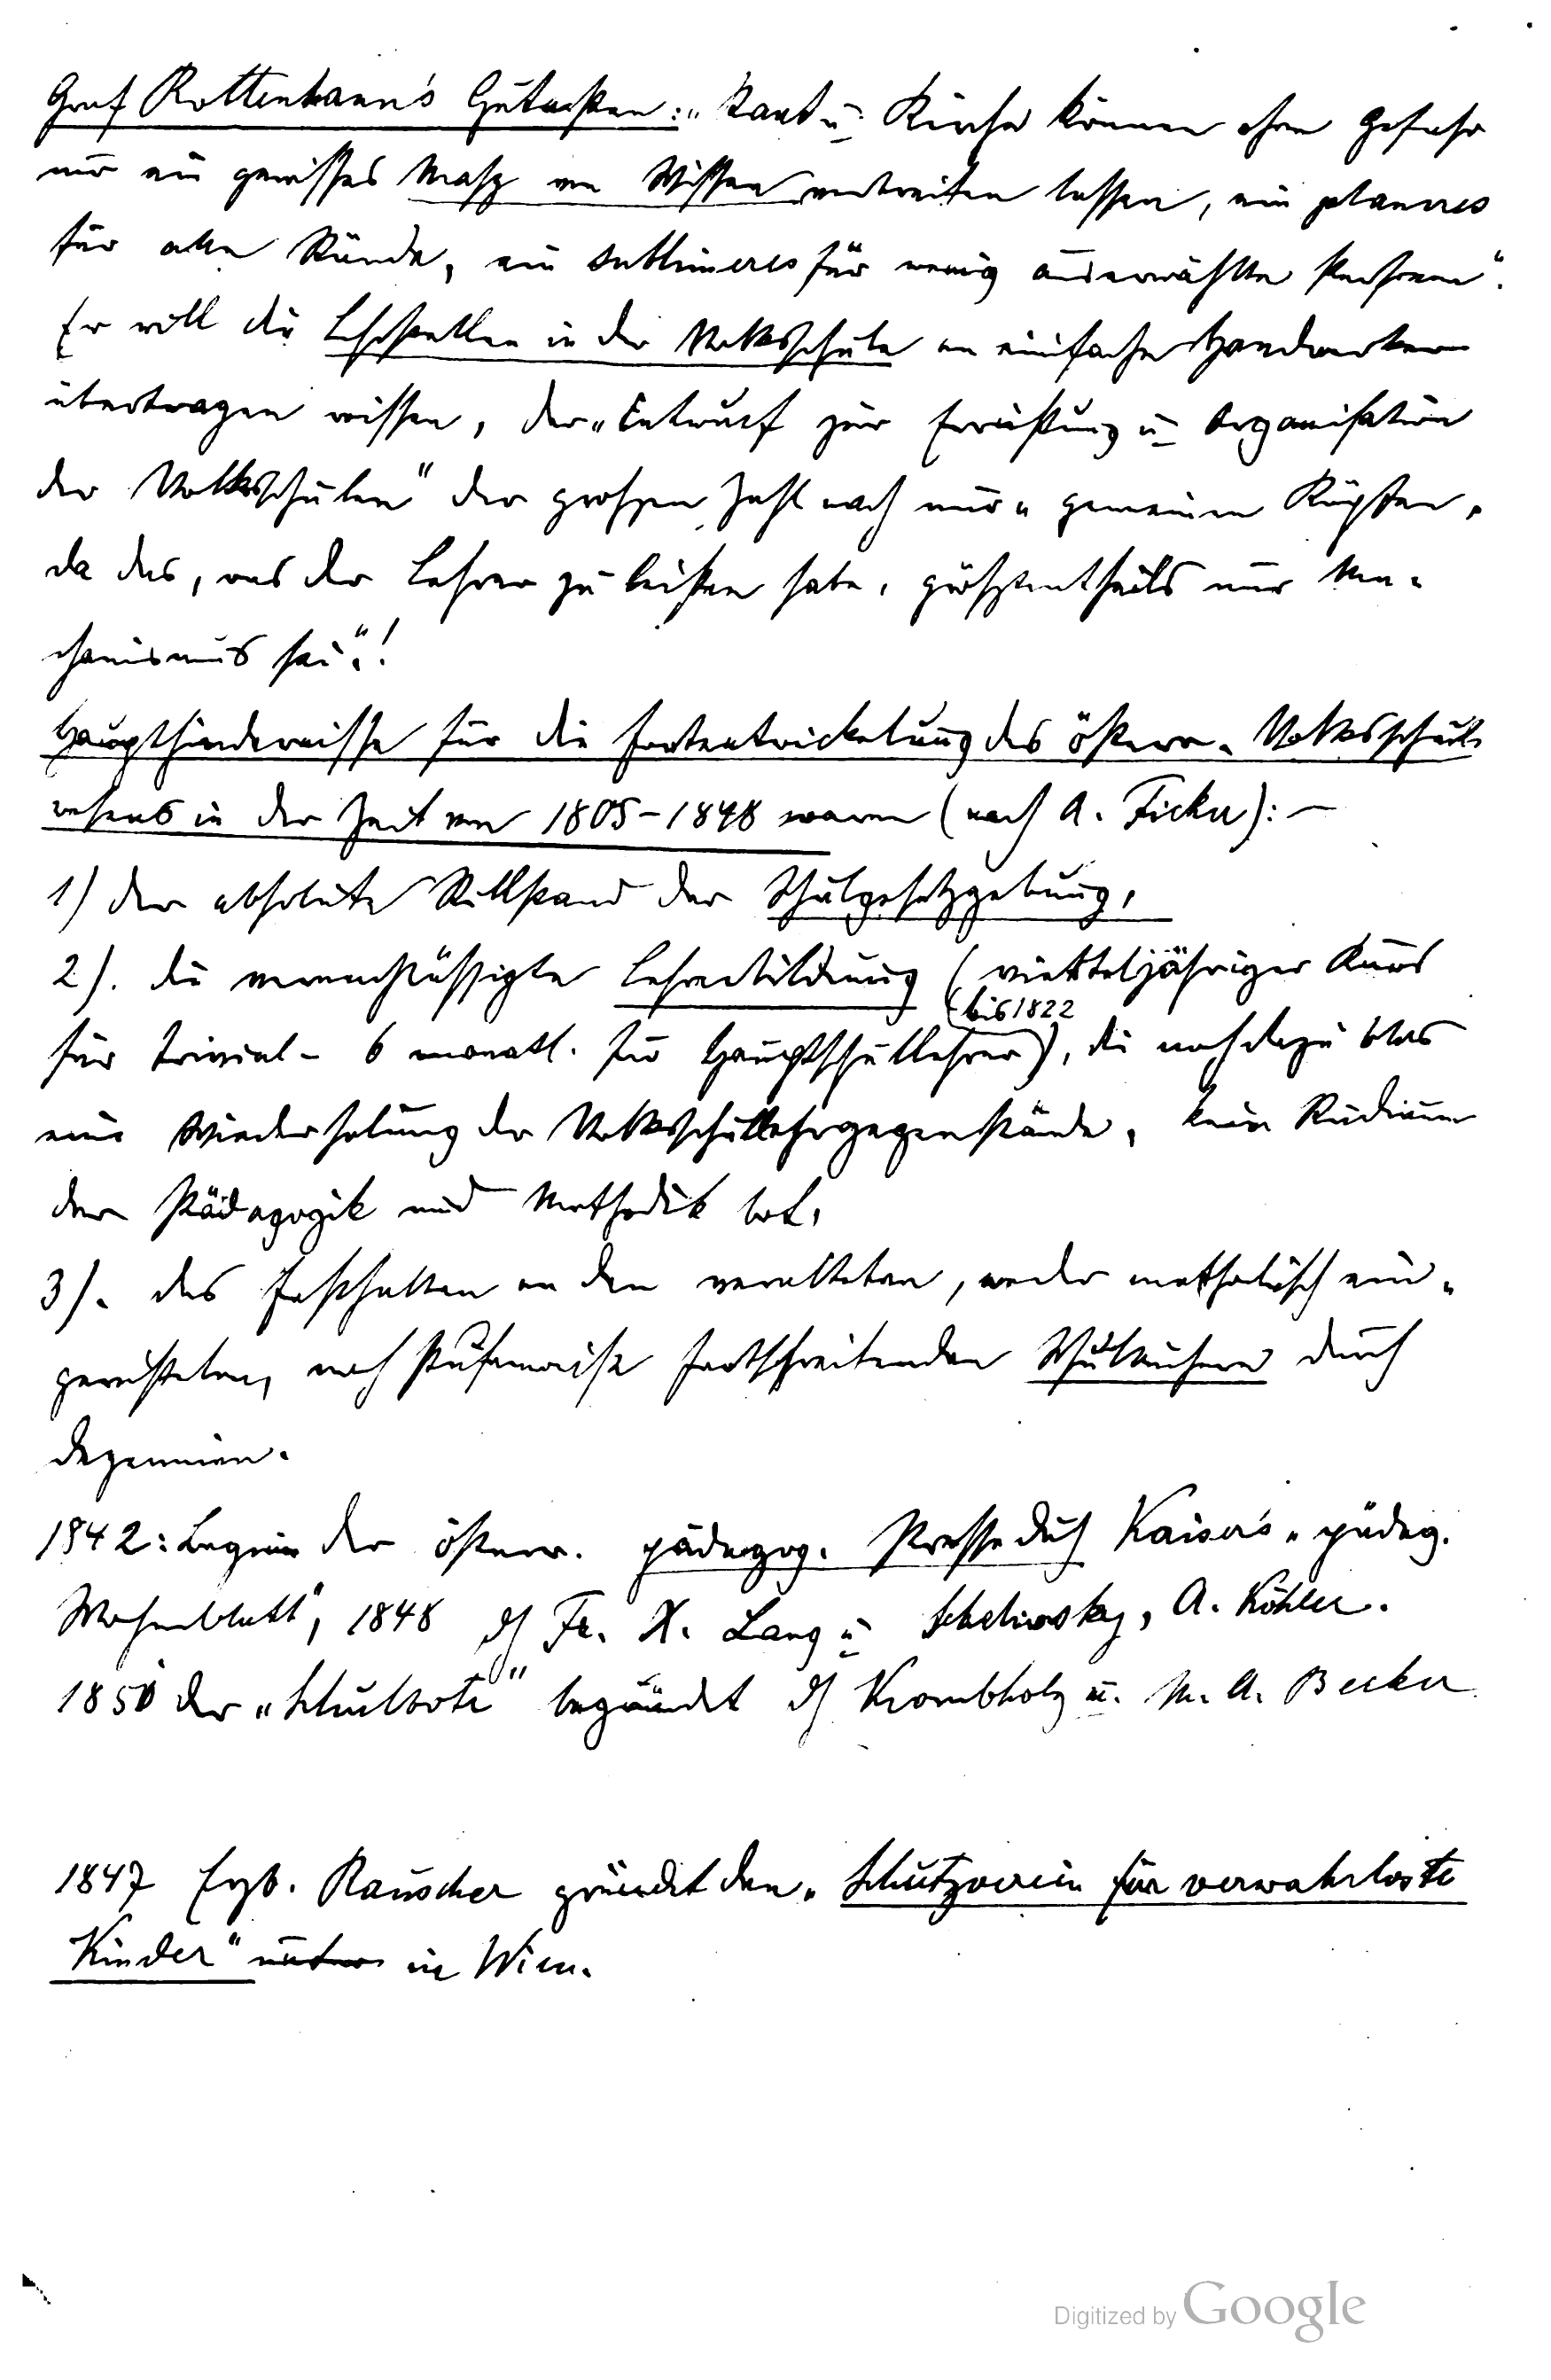 Graf Rottenhann's Gutachten: „Staat u. Kirche können ohne Gefahr
nur ein gewisses Masz von Wissen verbreiten lassen, ein planeres
für alle Stände, ein sublimeres für wenig auserwählte Personen“.
Er will die Lehrstellen in der Volksschule an einfache Handwerker
übertragen wissen, der „Entwurf zur Errichtung u. Organisation
der Volksschulen“ der groszen Zahl nach nur „gemeinen Köpfen,
da das, was der Lehrer zu leisten habe, gröszstentheils nur Me-
chanismus sei“!
Haupthindernisse für die Fortentwickelung des österr. Volksschul-
wesens in der Zeit von 1805-1848 waren (nach A. Ficker): —
1) der absolute Stillstand der Schulgesetzgebung,
2). die vernachlässigte Lehrerbildung (vierteljähriger Kurs
(bis 1822
für Trivial- 6 monatl. für Hauptschullehrer), die noch dazu blos
eine Wiederholung der Volksschullehrgegenstände, kein Studium
der Pädagogik und Methodik bot,
3). das Festhalten an den veralteten, weder methodisch ein-
gerichteten, noch stufenweise fortschreitenden Schulbüchern durch
Dezennien.
1842: Beginn der österr. pädagog. Presse durch Kaiser's „pädag.
Wochenblatt“, 1848 d. Fr. X. Lang u. A. Köhler.
1850 der „Schulbote“ begründet d. Krombholz u. M. A. Becker
1847 Erzb. Rauscher gründet den „Schutzverein für verwahrloste
Kinder“ in Wien.
Digitized by Google